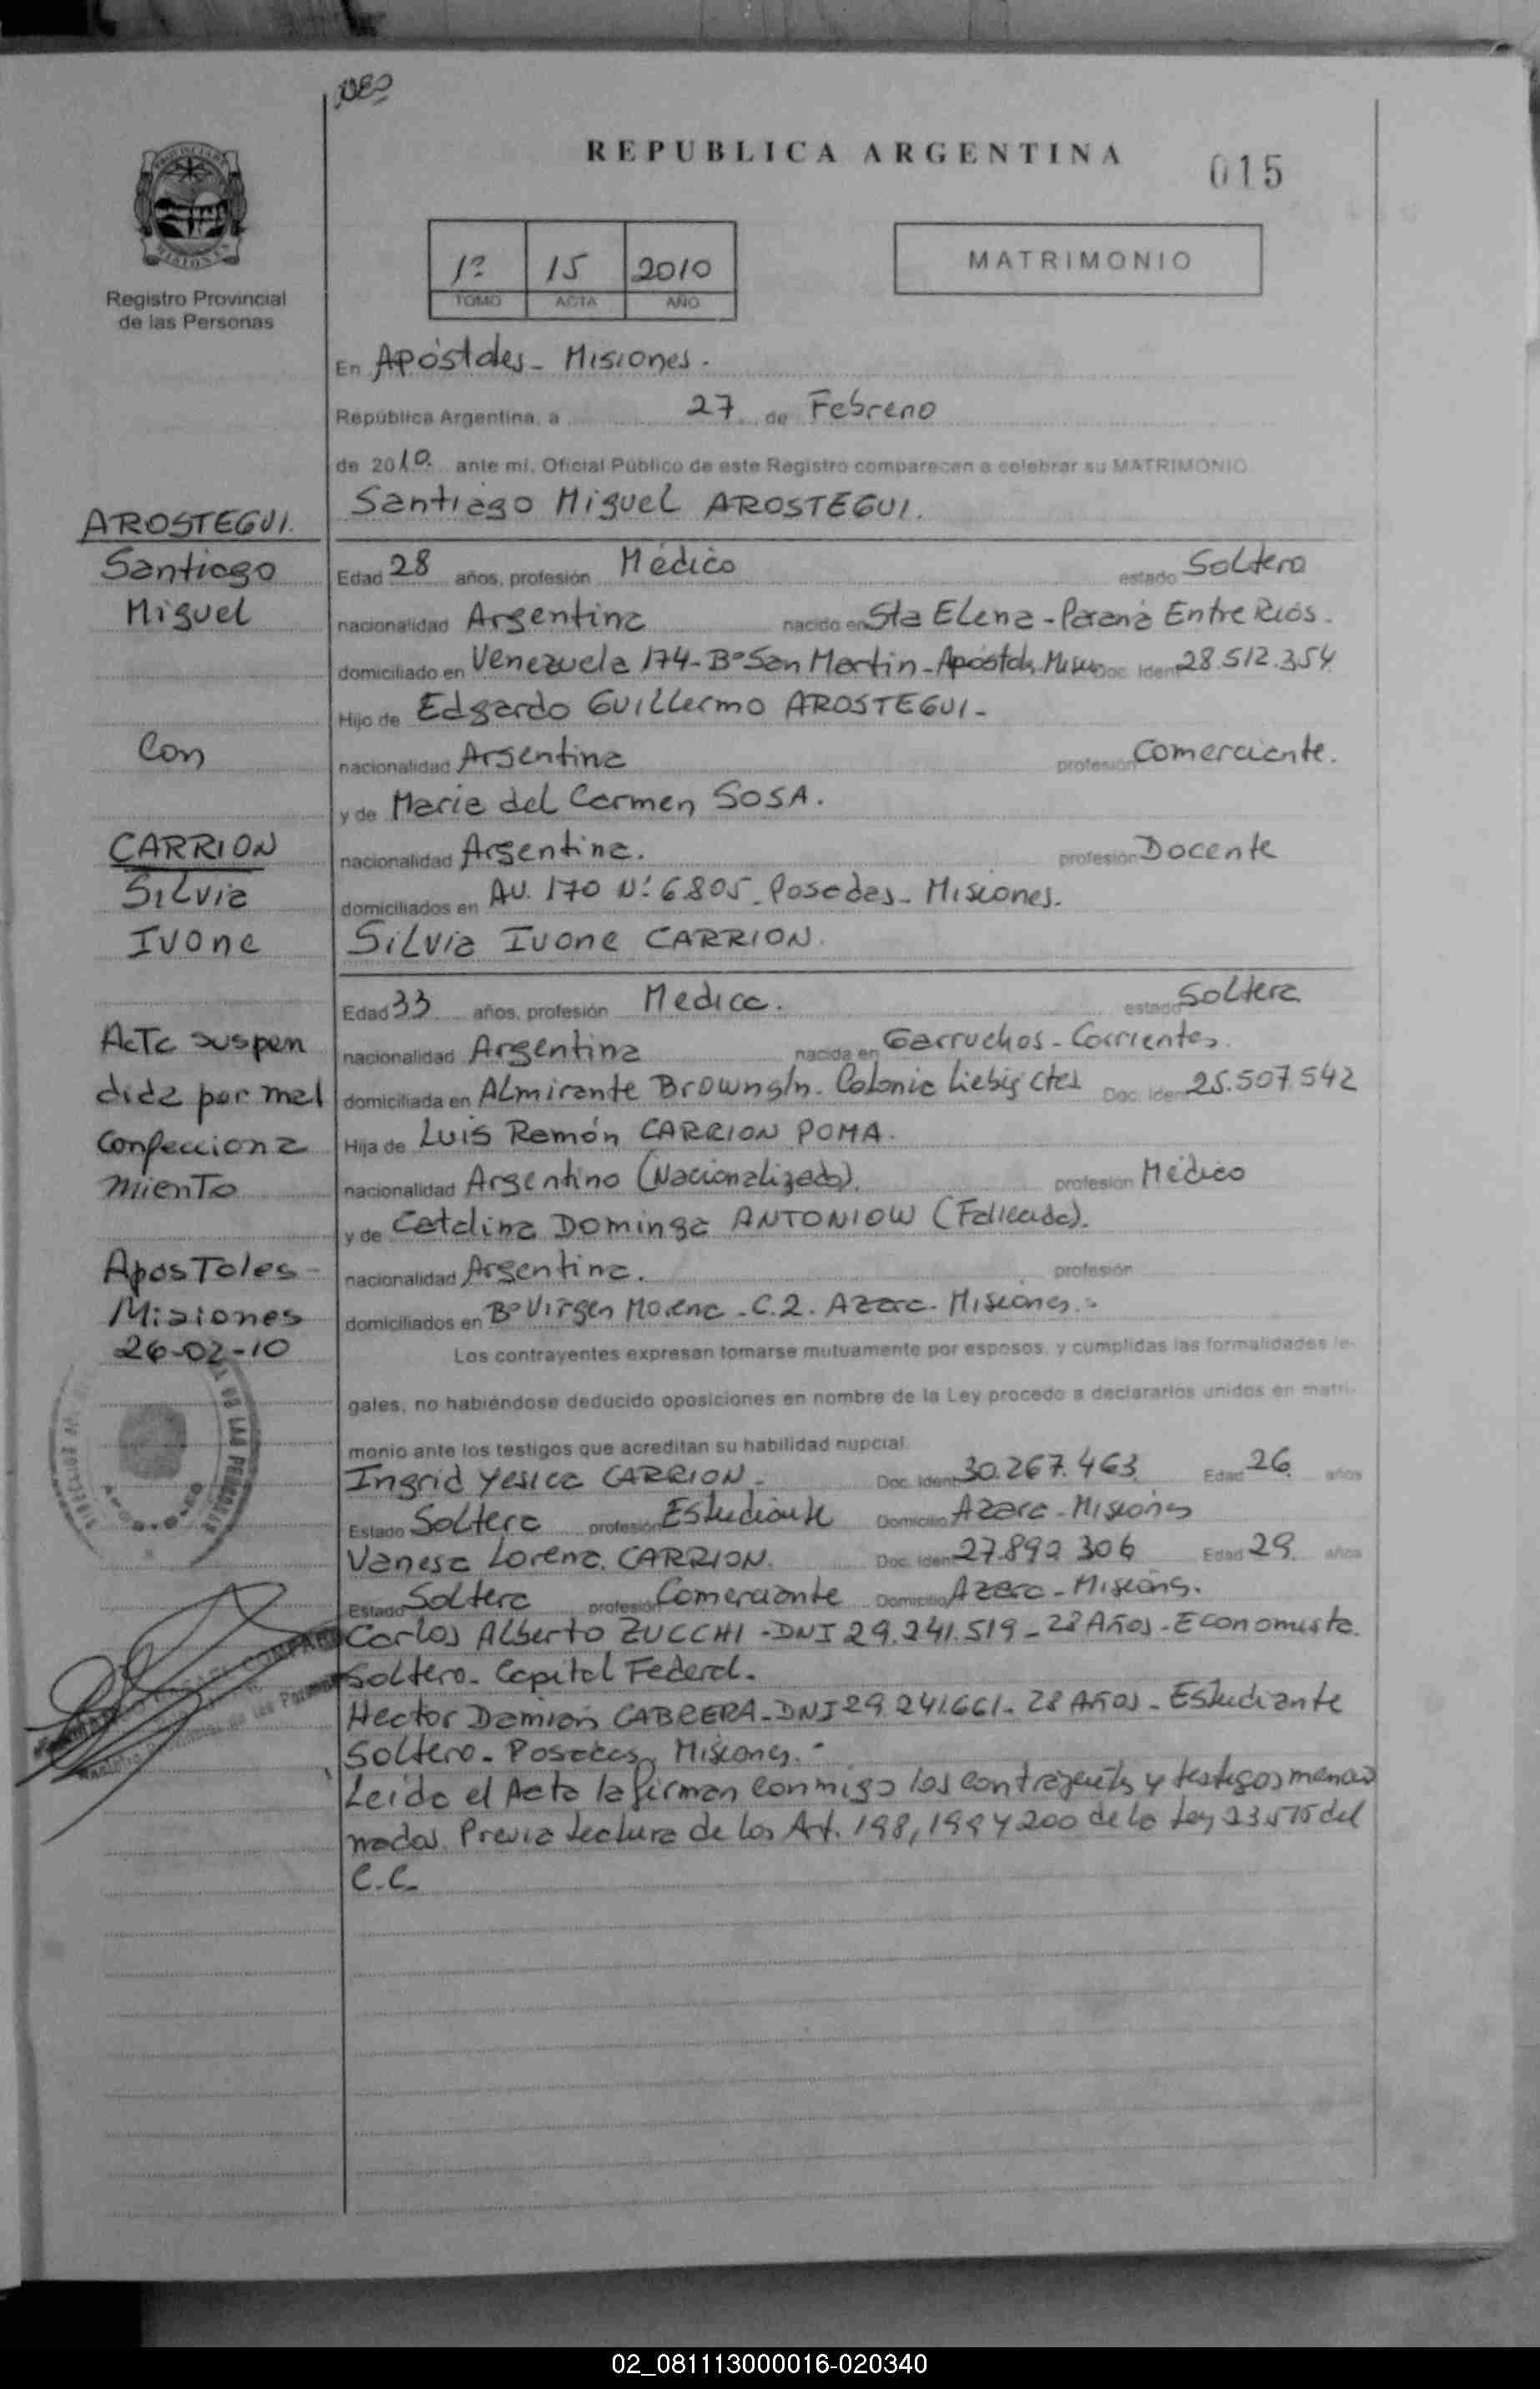 REPUBLICA ARGENTINA
015
PROVINCIA DE
MISIONES
Registro Provincial
de las Personas
1º 15 2010
TOMO ACTA AÑO
MATRIMONIO
En Apóstoles - Misiones.
República Argentina, a 27 de Febrero
de 2010. ante mí, Oficial Público de este Registro comparecen a celebrar su MATRIMONIO
Santiago Miguel AROSTEGUI.
AROSTEGUI.
Santiago
Miguel
Con
CARRION
Silvia
Ivone
Acta suspen
dida por mal
Confecciona
miento
Apostoles -
Misiones
26-02-10
Edad 28 años, profesión Médico estado Soltero
nacionalidad Argentina nacido en Sta Elena - Paraná Entre Rios.
domiciliado en Venezuela 174 - Bº San Martin - Apóstoles Mnes Doc. Ident 28.512.354
Hijo de Edgardo Guillermo AROSTEGUI -
nacionalidad Argentina profesión Comerciante.
y de Maria del Carmen SOSA.
nacionalidad Argentina. profesión Docente
domiciliados en Av. 170 Nº 6805 - Posadas - Misiones.
Silvia Ivone CARRION.
Edad 33 años, profesión Medica. estado Soltera
nacionalidad Argentina nacida en Garruchos - Corrientes.
domiciliada en Almirante Brown s/n. Colonia Liebig Ctes Doc. Ident 25.507.542
Hija de Luis Ramón CARRION POMA.
nacionalidad Argentino (Nacionalizado). profesión Médico
y de Catalina Dominga ANTONIOW (Fallecida).
nacionalidad Argentina. profesión
domiciliados en Bº Virgen Morena - C.2. Azara - Misiones.-
Los contrayentes expresan tomarse mutuamente por esposos, y cumplidas las formalidades le-
gales, no habiéndose deducido oposiciones en nombre de la Ley procedo a declararlos unidos en matri-
monio ante los testigos que acreditan su habilidad nupcial.
Ingrid Yesica CARRION. Doc. Ident 30.267.463 Edad 26. años
Estado Soltera profesión Estudiante Domicilio Azara - Misiones
Vanesa Lorena CARRION. Doc. Ident 27.892 306 Edad 29. años
Estado Soltera profesión Comerciante Domicilio Azara - Misiones.
Carlos Alberto ZUCCHI - DNI 29.241.519 - 28 Años - Economista.
Soltero - Capital Federal.
Hector Damián CABRERA - DNI 29.241.661 - 28 Años - Estudiante
Soltero - Posadas, Misiones.-
Leida el Acta la firman conmigo los contrayentes y testigos mencio
nados. Previa lectura de los Art. 198, 199 y 200 de la Ley 23.515 del
C.C.
02_081113000016-020340